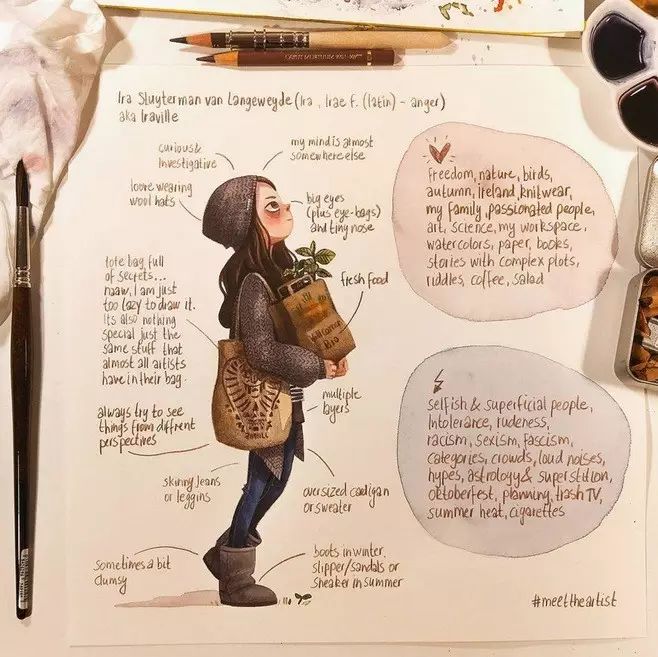 Ira Sluyterman van Langeweyde (Ira, Irae f. (latin) - anger)
aka Iraville
curious &
investigative
my mind is almost
somewhere else
love wearing
wool hats
big eyes
(plus eye-bags)
and tiny nose
freedom, nature, birds,
autumn, ireland, knitwear,
my family, passionated people,
art, science, my workspace,
watercolors, paper, books,
stories with complex plots,
riddles, coffee, salad
tote bag full
of secrets...
naaw, I am just
too lazy to draw it.
Its also nothing
special just the
same stuff that
almost all artists
have in their bag.
fresh food
Bio
multiple
layers
always try to see
things from diffrent
perspectives
selfish & superficial people,
Intolerance, rudeness,
racism, sexism, fascism,
categories, crowds, loud noises,
hypes, astrology & superstition,
oktoberfest, planning, trash TV,
summer heat, cigarettes
skinny jeans
or leggins
oversized cardigan
or sweater
sometimes a bit
clumsy
boots in winter,
slipper/sandals or
sneaker in summer
#meettheartist